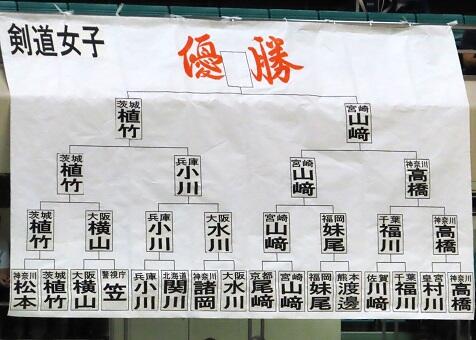 剣道女子
優勝
茨城 植竹
宮崎 山﨑
茨城 植竹
兵庫 小川
宮崎 山﨑
神奈川 高橋
茨城 植竹
大阪 横山
兵庫 小川
大阪 水川
宮崎 山﨑
福岡 妹尾
千葉 福川
神奈川 高橋
神奈川 松本
茨城 植竹
大阪 横山
警視庁 笠
兵庫 小川
北海道 関川
神奈川 諸岡
大阪 水川
京都 尾﨑
宮崎 山﨑
福岡 妹尾
熊本 渡邊
佐賀 川﨑
千葉 福川
皇宮 村川
神奈川 高橋